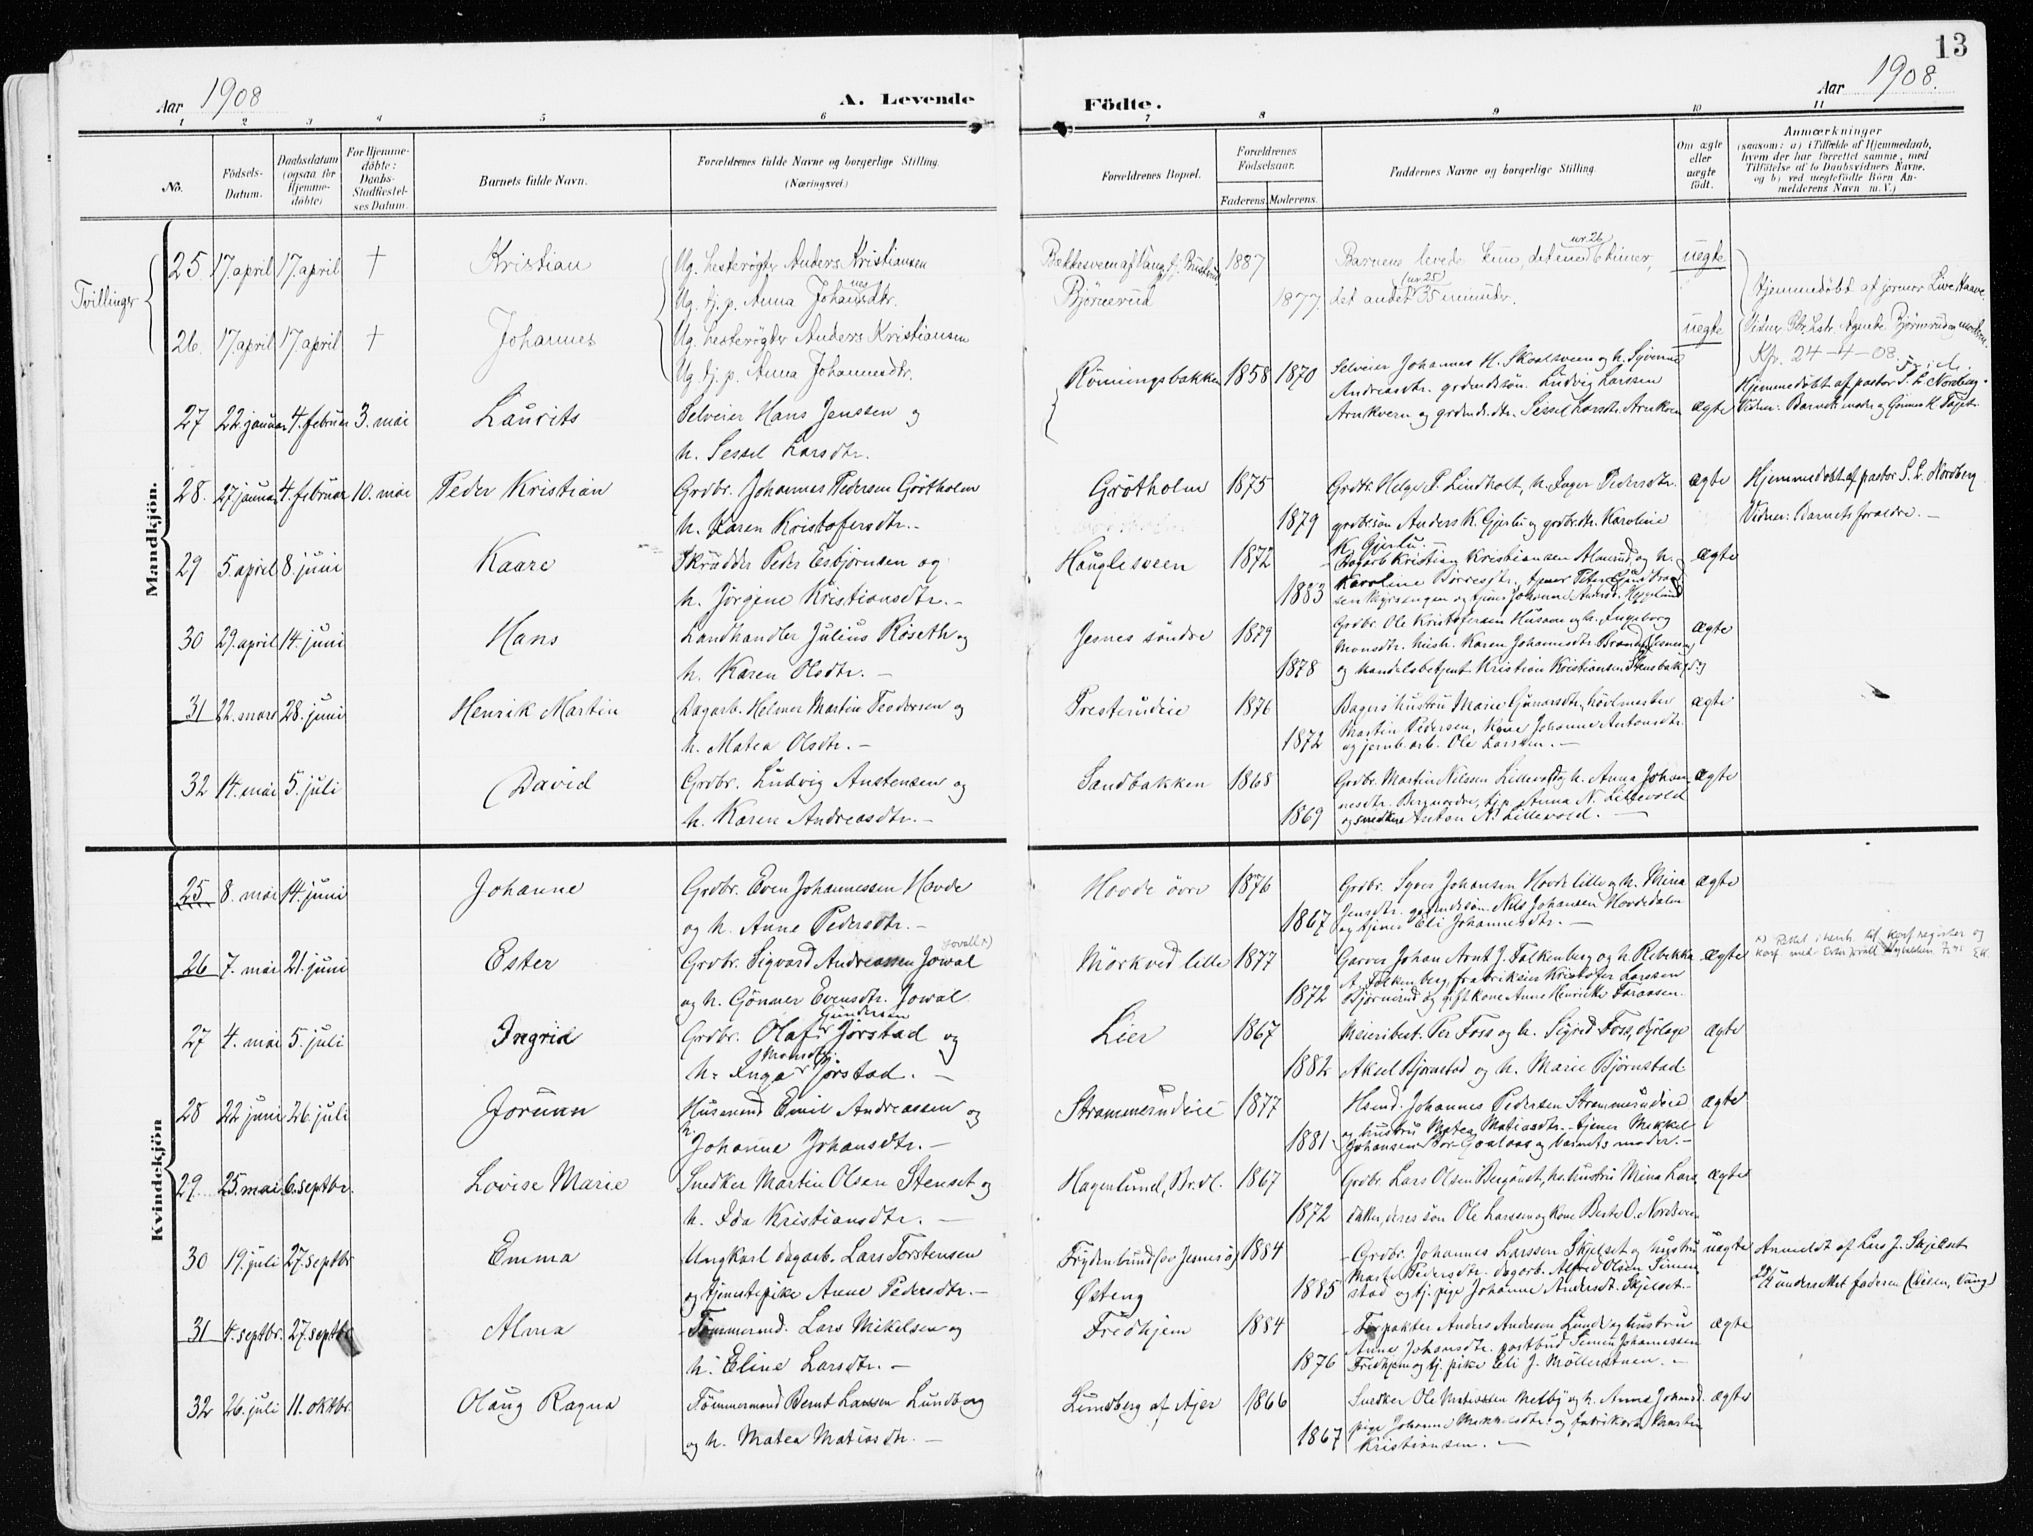 13
Aar 1908
A. Levende
Födte.
Aar 1908.
1 2 3 4 5 6 7 8 9 10 11
No.
Födsels-
Datum.
Daabsdatum
(ogsaa for
Hjemme-
döbte)
For Hjemme-
döbte:
Daabs-
Stadfæstel-
ses Datum.
Barnets fulde Navn.
Forældrenes fulde Navne og borgerlige Stilling.
(Næringsvei)
Forældrenes Bopæl.
Forældrenes
Födselsaar.
Faderens. Moderens.
Faddernes Navne og borgerlige Stilling.
Om ægte
eller
uægte
födt.
Anmærkninger
(saasom: a) i Tilfælde af Hjemmedaab,
hvem der har forrettet samme, med
Tilföielse af to Daabsvidners Navne,
og b) ved uægtefödte Börn An-
melderens Navn m. V.)
Tvillinger
Mandkjön.
25 17. april 17. april † Kristian
Ug. hesterøgter Anders Kristiansen
Ug. tj. p. Anna Johannesdtr.
Bjørnerud
1887
1877.
Barnene levede kun, det ene (nr 26) 6 timer,
det andet (nr 25) 35 minuder.
uegte
Hjemmedøbt af jormor Live Haave.
26. 17. april 17. april † Johannes
Ug. hesterøgter Anders Kristiansen
Ug. tj. p. Anna Johannesdtr.
uegte
Kfr. 24-4-08.
27 22. januar 4. februar 3. mai Laurits
Selveier Hans Jenssen og
h. Sessel Larsdtr.
Rönningsbakken 1858 1870
Selveier Johannes H. Skaalsveen og h. Syverine
Andreasdtr. grdmdssön. Ludvig Larssen
Arnkvern og grdmds.dtr. Sessel Larsdtr. Arnkvern
ægte
Hjemmedöbt af pastor S. L. Nordberg.
28. 27 januar 4. februar 10. mai Peder Kristian
Grdbr. Johannes Pedersen Grötholm
h. Karen Kristofersdtr.
Grötholm 1875
1879
Grdbr. Helge P. Lindholt, h. Inger Pedersdtr.
grdbr.sön Anders K. Gjerlu og grdbr.dtr. Karoline
K. Gjerlu.
ægte
Hjemmedöbt af pastor S. L. Nordberg
Vidner: Barnets foraldre. –
29 5. april 8. juni Kaare
Skrædder Peder Esbjörnsen og
h. Jörgine Kristiansdtr. –
Hauglesveen 1872
1883
Dagarb. Kristian Kristiansen Almerud og h.
Karoline Börresdtr.
ægte
30 29. april 14. juni Hans
Landhandler Julius Röseth og
h. Karen Olsdtr. –
Jesnes söndre 1879
1878
Grdbr. Ole Kristofersen Husom og h. Ingeborg
Monsdtr. hustr. Karen Johannesdtr.
og handelsbetjent Kristian Kristiansen
ægte
31 22. mars 28. juni Henrik Martin
Dagarb. Helmer Martin Teodorsen og
h. Matea Olsdtr. –
Presterudeie 1876
1872
Bagers hustru Marie Gunarsdtr, hövlmester
Martin Pedersen, Kone Johanne Antonsdtr.
og jernb.arb. Ole Larssen. –
ægte
32 14. mai 5. juli David
Grdbr. Ludvig Anstensen og
h. Karen Andreasdtr. –
Sandbakken 1868
1869
Grdbr. Martin Nilssen Lillevold og h. Anna Johan-
nesdtr. Berg nordre, tj.p. Anna N. Lillevold
og snedker Anton N. Lillevold. –
ægte
Kvindekjön
25 8. mai 14. juni Johanne
Grdbr. Even Johannessen Hovde
og h. Anne Pedersdtr. –
Hovde övre 1876
1867
Grdbr. Syver Johansen Hovde lille og h. Mina
Jensdtr. grdmdssön. Nils Johansen Hovdedalen
og tjener Eli Johannesdtr. –
ægte
26 7. mai 21. juni Ester
Grdbr. Sigvard Andreassen Jowal (Jovall x)
og h. Gönner Evensdtr. Jowal.
Mörkved lille 1877
1872
Garver Johan Arnt J. Falkenberg og h. Rebekka
A. Falkenberg, fabrikeier Kristofer Larssen
Björnerud og gift kone Anne Henrikke Toraasen.
ægte
27 4. mai 5. juli Ingrid
Grdbr. Olaf Gundersen Jörstad og
h. Inga Monsdtr. Jörstad. –
Lier 1867
1882
Meieribest. Per Foss og h. Sigrid Foss, dyrlæge
Aksel Björnstad og h. Marie Björnstad.
ægte
28 22. juni 26. juli Jorunn
Husmand Emil Andreassen og
h. Johanne Johansdtr. –
Strammerudeie 1877
1881
Hsmd. Johannes Pedersen Strammerudeie
og hustru Matea Matiasdtr. tjener Mikkel
Johansen og barnets moder. –
ægte
29. 25. mai 6. septbr. Lovise Marie
Snedker Martin Olsen Stenset og
h. Ida Kristiansdtr. –
Hagenlund, Br.dl. 1867
1872
Grdbr. Lars Olsen Bergönst, hs. hustru Mina Lars-
datter, deres sön Ole Larssen og kone Berte O. Nordsveen
ægte
30 19. juli 27. septbr Emma
Ungkarl dagarb. Lars Torstensen
og tjenestepike Anne Pedersdtr. –
Østeng
1884
1885
Grdbr. Johannes Larssen Skjelset og hustru
Marte Pedersdtr. dagarb. Alfred Olsen Simen-
stad og tj. pige Johanne Andersdtr. Skjelset. –
uægte
Anmeldt af Lars J. Skjelset
undersøkt faderen (Lien, Vang)
31 4. septbr. 27. septbr Alma
Tömmermd. Lars Mikelsen og
h. Eline Larsdtr. –
Fredhjem 1884
1876
Forpakter Anders Andersen Lund og hustru
Anne Johansdtr. postbud Simen Johannessen
Fredhjem og tj. pike Eli J. Möllerstuen. –
ægte
32 26. juli 11. oktbr. Olaug Ragna
Tömmermand Bernt Larssen Lundberg
og h. Matea Matiasdtr. –
Lundberg af Ajer 1866
1867
Snedker Ole Matiassen Melby og h. Anne Johansd.
pige Johanne og fabrikarb. Martin
Kristiansen. –
ægte